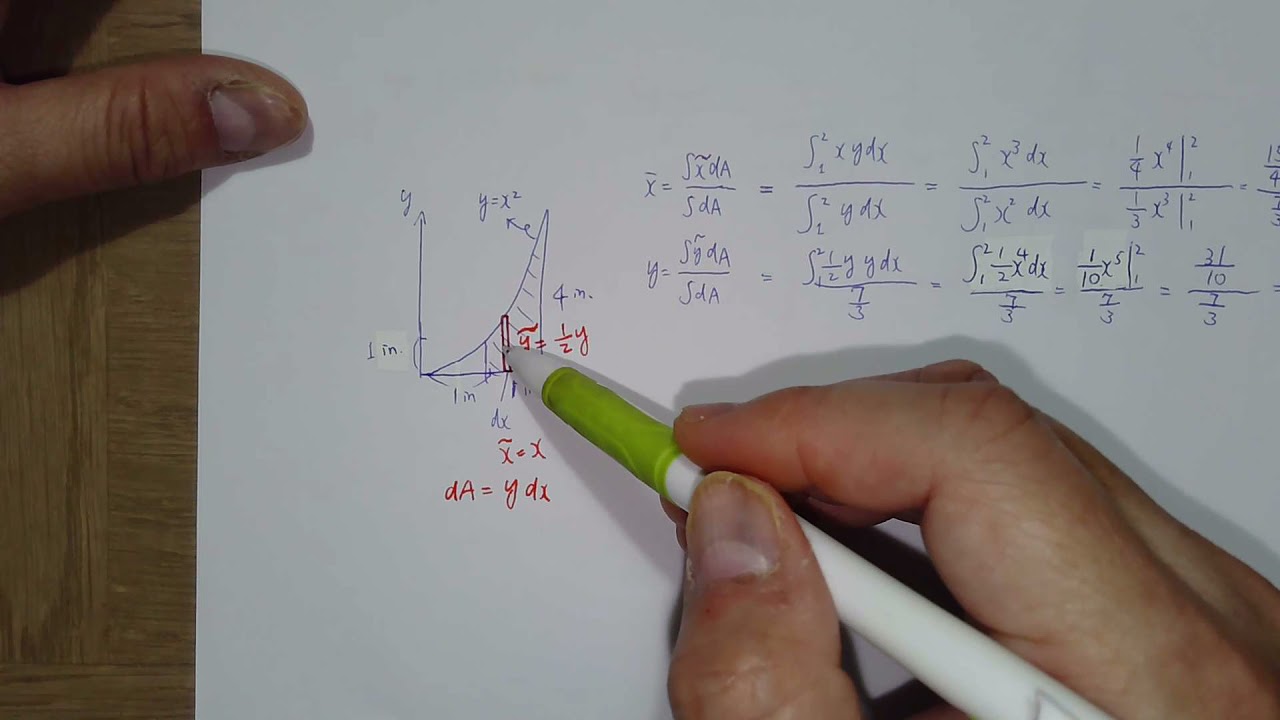 y
y=x²
4 in.
1 in.
ỹ = 1/2 y
1 in
dx
x̃ = x
dA = y dx
x̄ = ∫x̃dA / ∫dA = ∫₁² x y dx / ∫₁² y dx = ∫₁² x³ dx / ∫₁² x² dx = 1/4 x⁴ |₁² / 1/3 x³ |₁² =
y = ∫ỹdA / ∫dA = ∫₁² 1/2 y y dx / 7/3 = ∫₁² 1/2 x⁴ dx / 7/3 = 1/10 x⁵ |₁² / 7/3 = 31/10 / 7/3 =